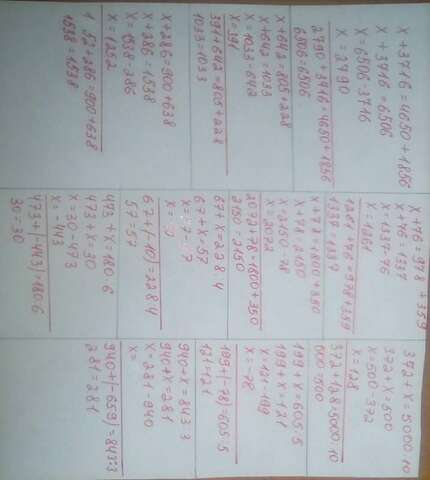 x + 3716 = 4650 + 1856
x + 3716 = 6506
x = 6506 - 3716
x = 2790
2790 + 3716 = 4650 + 1856
6506 = 6506
x + 642 = 805 + 228
x + 642 = 1033
x = 1033 - 642
x = 391
391 + 642 = 805 + 228
1033 = 1033
x + 286 = 900 + 638
x + 286 = 1538
x = 1538 - 286
x = 1252
1252 + 286 = 900 + 638
1538 = 1538
x + 76 = 978 + 359
x + 76 = 1337
x = 1337 - 76
x = 1261
1261 + 76 = 978 + 359
1337 = 1337
x + 78 = 1800 + 350
x + 78 = 2150
x = 2150 - 78
x = 2072
2072 + 78 = 1800 + 350
2150 = 2150
67 + x = 228 : 4
67 + x = 57
x =
67 + (-10) = 228 : 4
57 = 57
473 + x = 180 : 6
473 + x = 30
x = 30 - 473
x = -443
473 + (-443) = 180 : 6
30 = 30
372 + x = 5000 : 10
372 + x = 500
x = 500 - 372
x = 128
372 + 128 = 5000 : 10
500 = 500
199 + x = 605 : 5
199 + x = 121
x = 121 - 199
x = -78
199 + (-78) = 605 : 5
121 = 121
940 + x = 843 : 3
940 + x = 281
x = 281 - 940
x =
940 + (-659) = 843 : 3
281 = 281